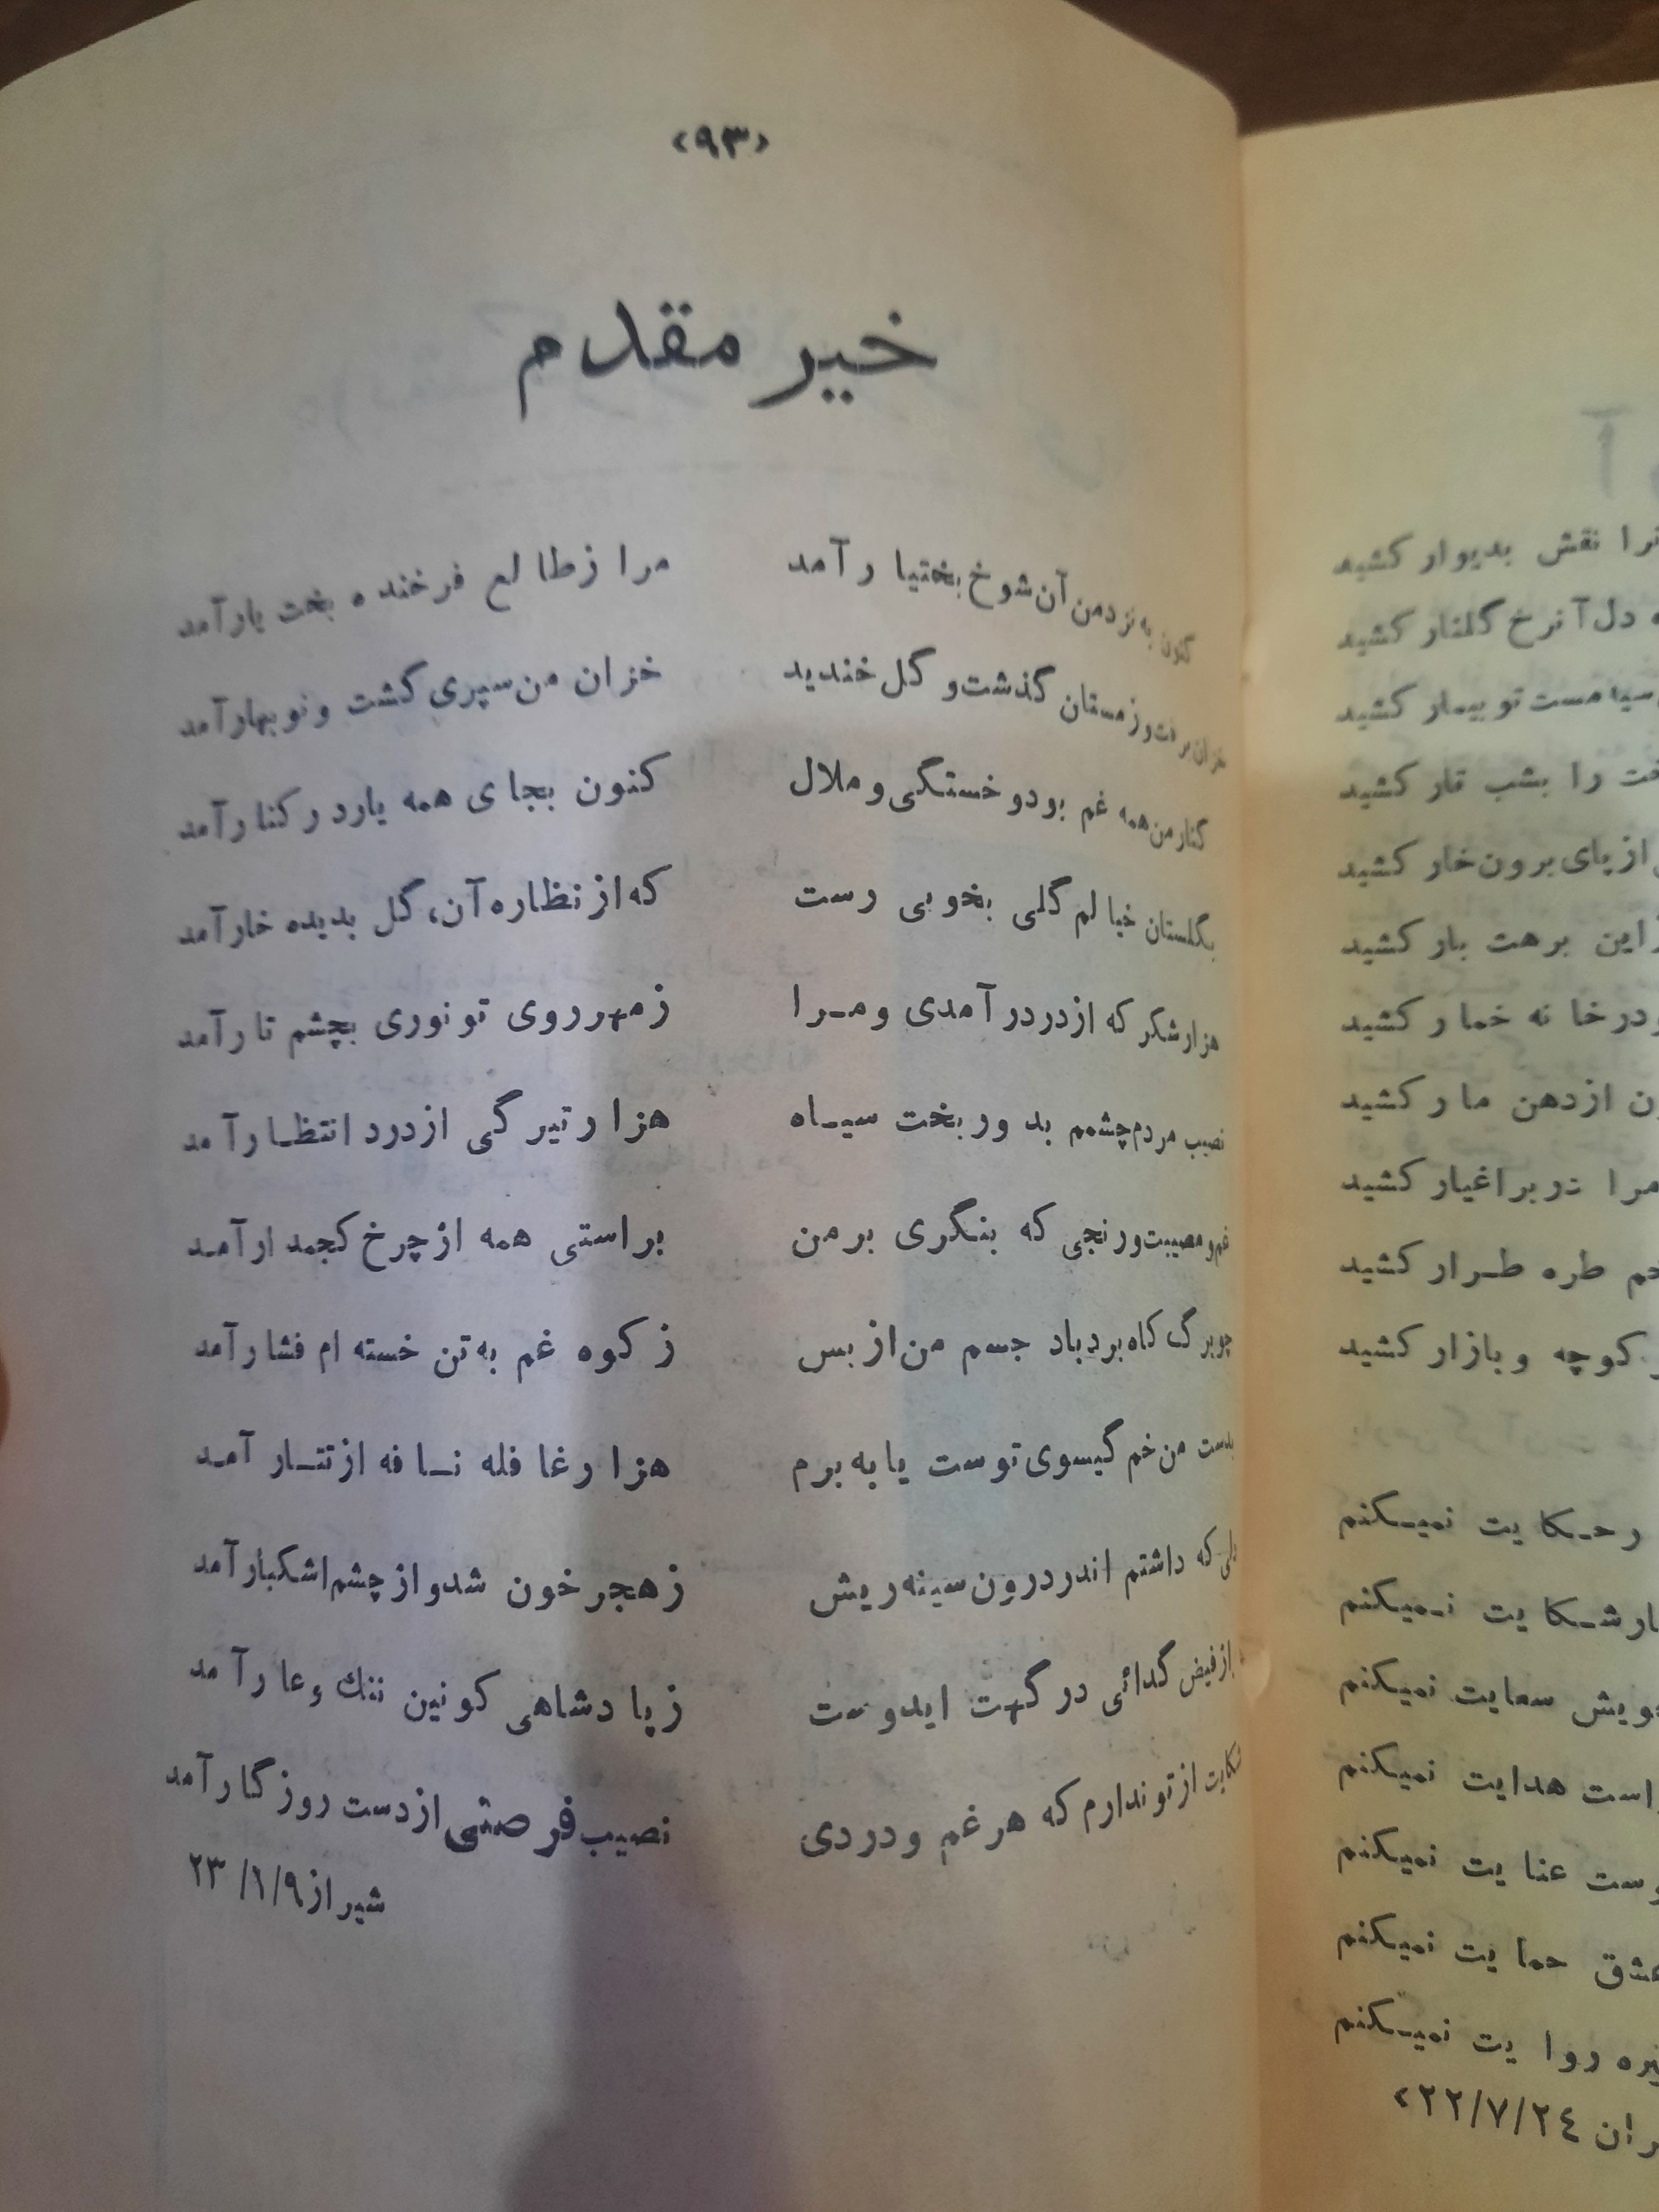 <۹۳>
خیر مقدم
کنون به نزد من آن شوخ بختیار آمد
مرا ز طالع فرخنده بخت یار آمد
خزان برفت و زمستان گذشت و گل خندید
خزان من سپری گشت و نو بهار آمد
کنار من همه غم بود و خستگی و ملال
کنون بجای همه یار در کنار آمد
بگلستان خیالم گلی بخوبی رست
که از نظاره آن، گل بدیده خار آمد
هزار شکر که از در در آمدی و مرا
ز مهر روی تو نوری بچشم تار آمد
نصیب مردم چشمم بد ور بخت سیاه
هزار تیرگی از درد انتظار آمد
غم و مصیبت و رنجی که بنگری بر من
براستی همه از چرخ کجمدار آمد
چو برگ کاه برد باد جسم من از بس
ز کوه غم به تن خسته ام فشار آمد
بدست من خم گیسوی توست یا به برم
هزارغا فله نافه از تتار آمد
دلی که داشتم اندر درون سینه ریش
ز هجر خون شد و از چشم اشکبار آمد
از فیض گدائی درگهت ایدوست
ز پادشاهی کونین ننگ و عار آمد
شکایت از تو ندارم که هر غم و دردی
نصیب فرصتی از دست روزگار آمد
شیراز ۲۳/۱/۹
را نقش بدیوار کشید
دل آنرخ گلنار کشید
سیه مست تو بیمار کشید
را بشب تار کشید
از پای برون خار کشید
این برهت بار کشید
در خانه خمار کشید
از دهن مار کشید
مرا در بر اغیار کشید
طره طرار کشید
کوچه و بازار کشید
حکایت نمیکنم
شکایت نمیکنم
سعایت نمیکنم
است هدایت نمیکنم
عنایت نمیکنم
حمایت نمیکنم
روایت نمیکنم
۲۲/۷/۲۴>